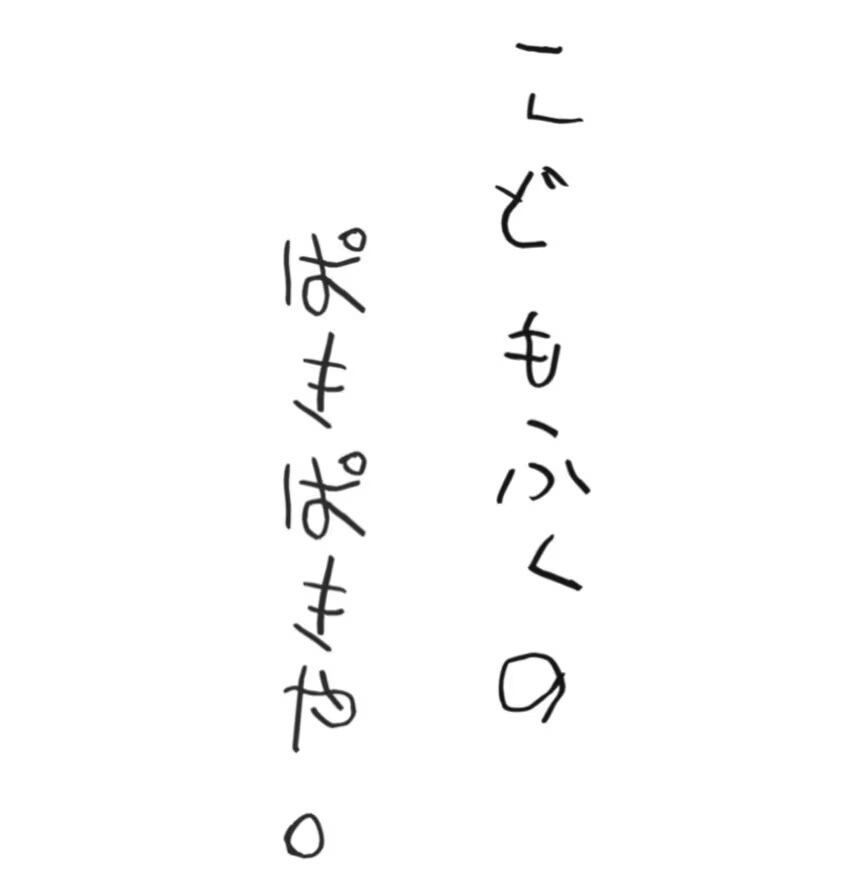 こどもふくの
ぱきぱきや。